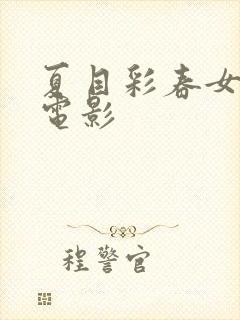 夏目彩春女
電影
程警官